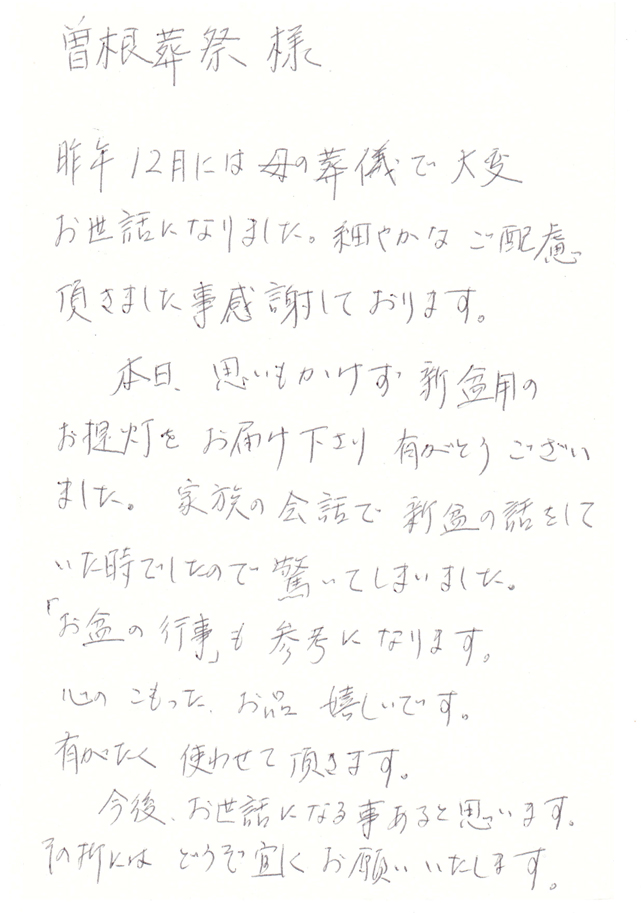 曽根葬祭 様
昨年12月には母の葬儀で大変
お世話になりました。細やかなご配慮
頂きました事感謝しております。
本日、思いもかけず新盆用の
お提灯をお届け下さり有がとうござい
ました。家族の会話で新盆の話をして
いた時でしたので驚いてしまいました。
「お盆の行事」も参考になります。
心のこもったお品嬉しいです。
有がたく使わせて頂きます。
今後、お世話になる事あると思います。
その折にはどうぞ宜くお願いいたします。